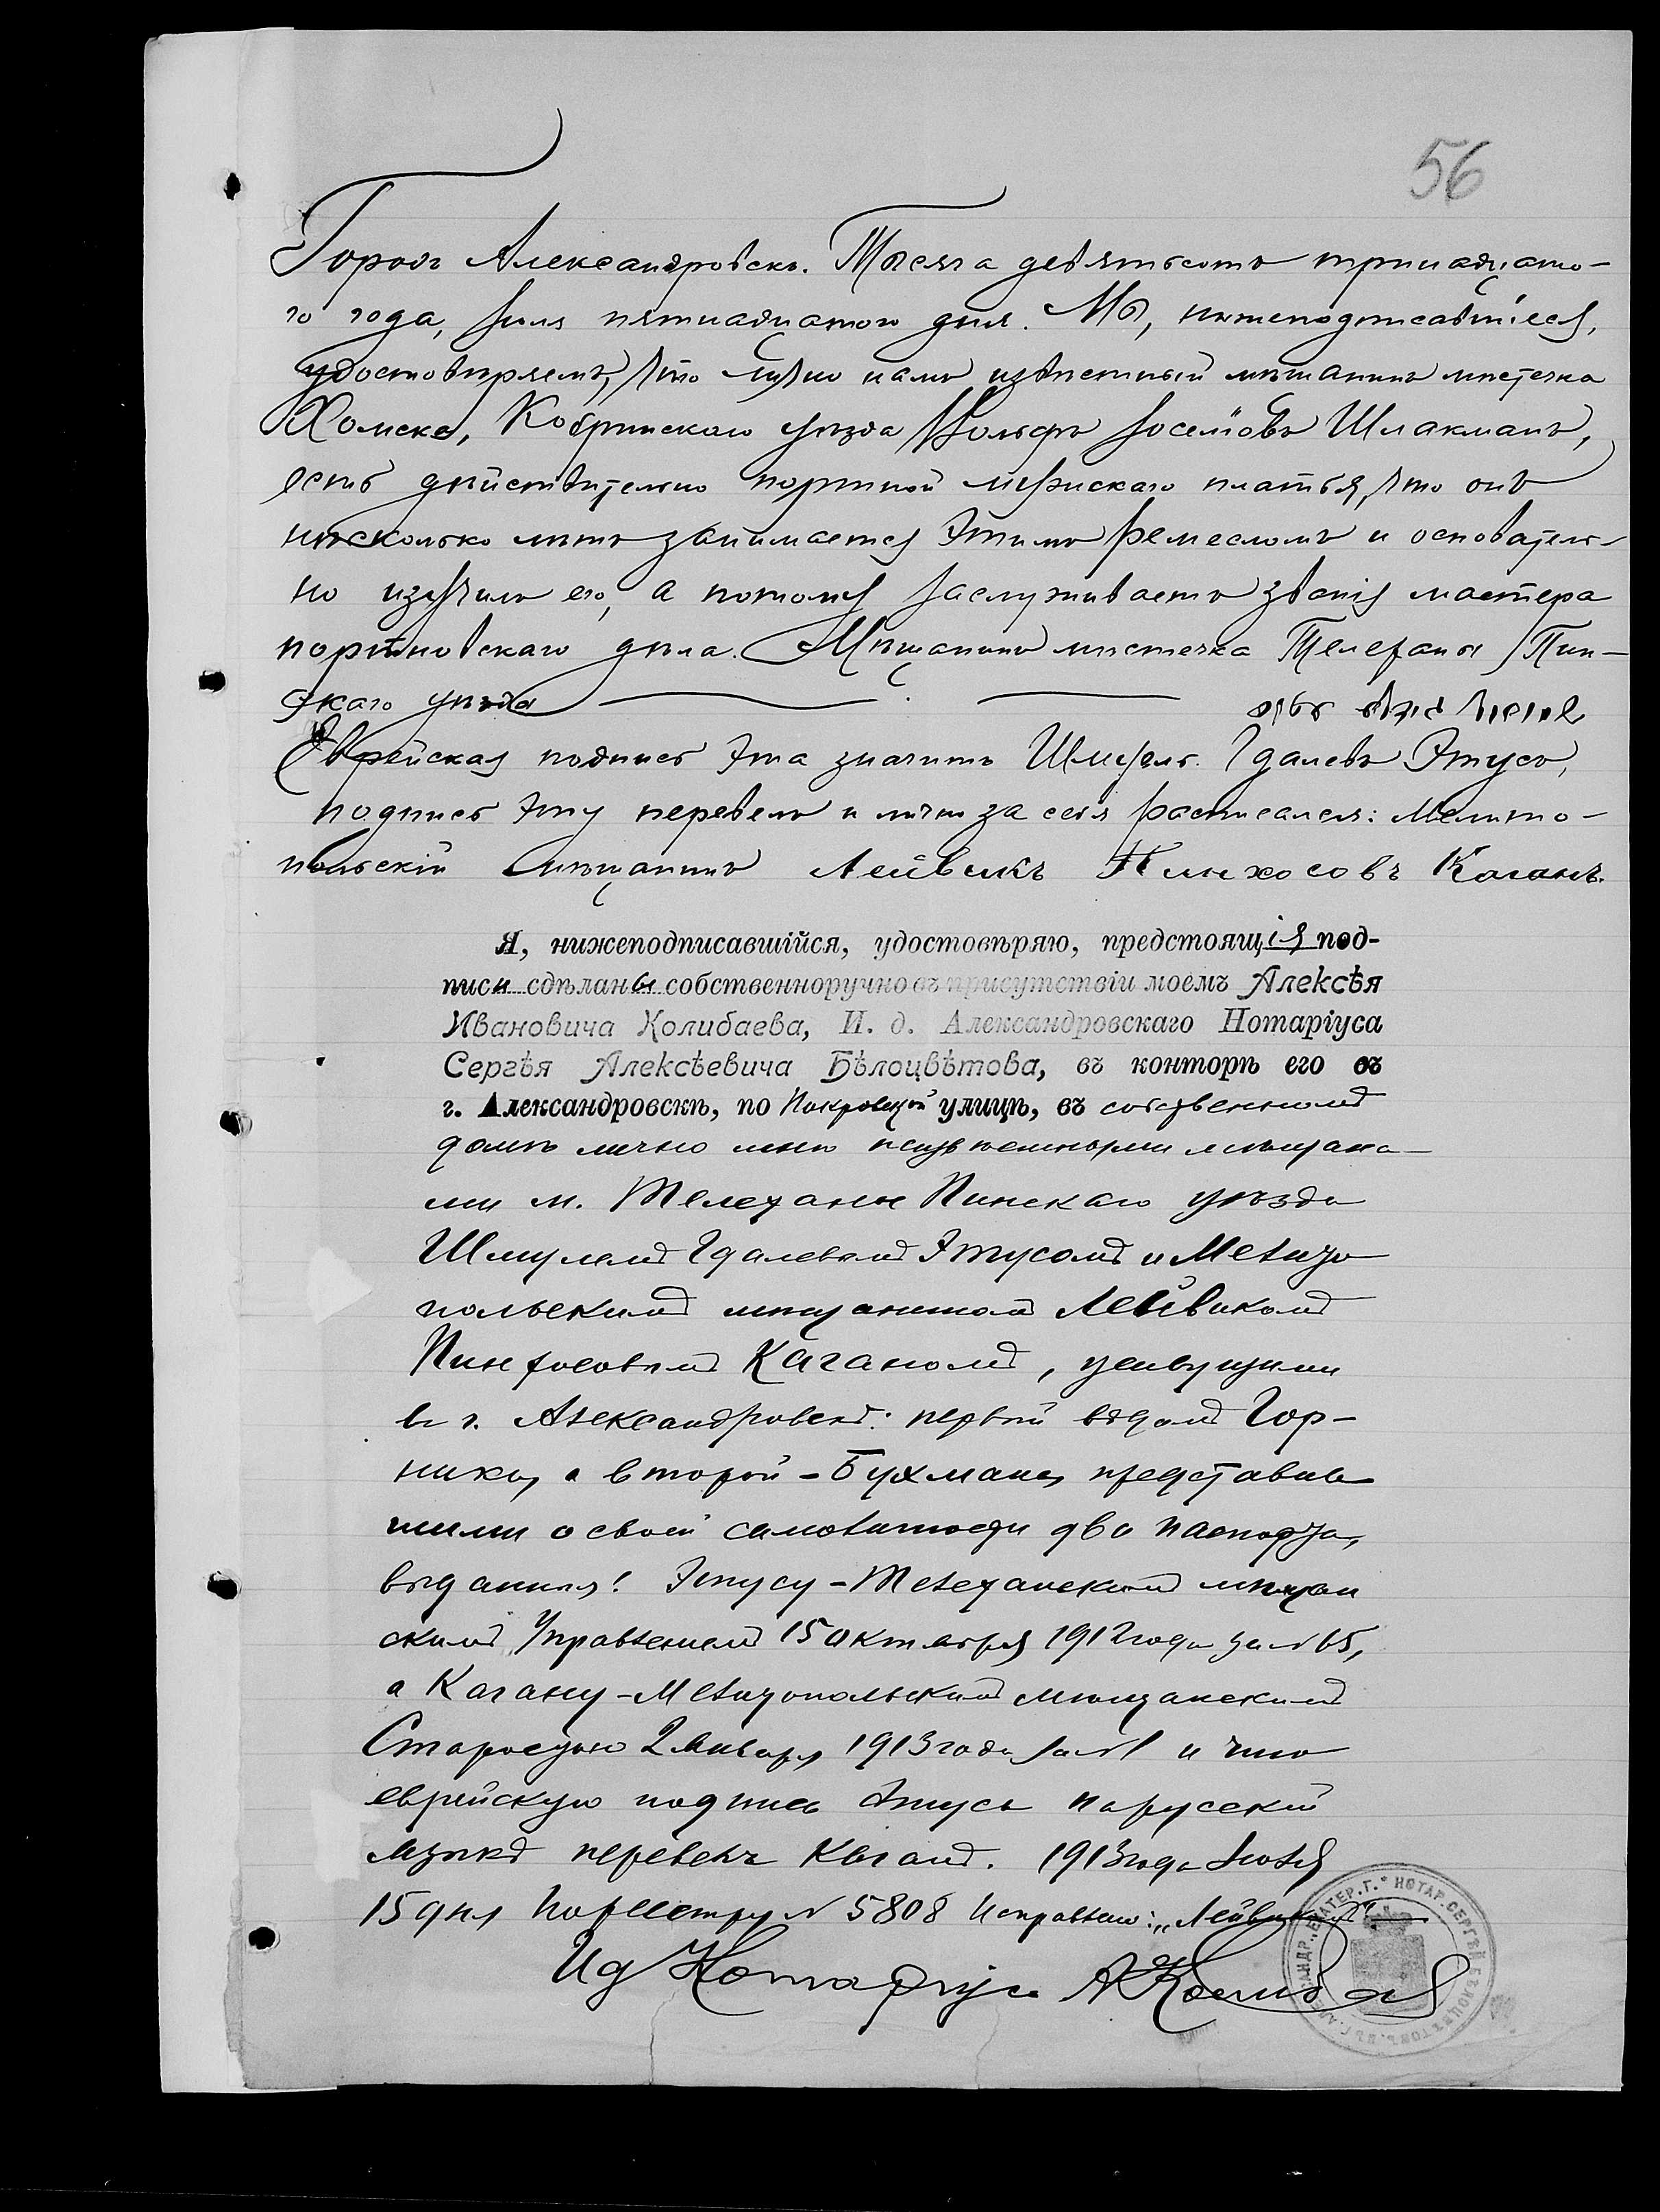 56
Городъ Александровскъ. Тысяча девятьсотъ тринадцато-
го года, Іюля пятнадцатого дня. Мы, нижеподписавшіеся,
удостовѣряемъ, что лично намъ извѣстный мѣщанинъ мѣстечка
Хомска, Кобринскаго уѣзда Вольфъ Іосе́овъ Шлакманъ,
есть дѣйствительно портной мужскаго платья, что онъ
нѣсколько лѣтъ занимается этимъ ремесломъ и основатель-
но изучилъ его, а потому заслуживаетъ званія мастера
портновскаго дѣла. Мѣщанинъ мѣстечка Телеханы Пин-
скаго уѣзда
Еврейская подпись эта значитъ Шмуель Гдалевъ Этусъ,
подпись эту перевелъ и лично за себя расписался: Мелито-
польскій мѣщанинъ Лейвикъ Пинхосовъ Каганъ.
Я, нижеподписавшійся, удостовѣряю, предстоящія под-
писи сдѣланы собственноручно въ присутствіи моемъ Алексѣя
Ивановича Колибаева, И. д. Александровскаго Нотаріуса
Сергѣя Алексѣевича Бѣлоцвѣтова, въ конторѣ его въ
г. Александровскѣ, по Покровской улицѣ, въ собственномъ
домѣ лично мнѣ неизвѣстными мѣщана-
ми м. Телеханы Пинскаго уѣзда
Шмулемъ Гдалевымъ Этусомъ и Мелито
польскимъ мѣщаниномъ Лейвикомъ
Пинхосовымъ Каганомъ, живущими
въ г. Александровскѣ: первый въ домѣ Гор-
ника, а второй - Бухмана, представив
шими о своей самоличности два паспорта,
выданныя: Этусу - Телеханскимъ мѣщан
скимъ Управленіемъ 15 октября 1912 года за № 65,
а Кагану - Мелитопольскимъ мѣщанскимъ
Старостою 2 Января 1913 года за №1 и что
еврейскую подпись Этуса на русскій
языкъ перевелъ Каганъ. 1913 года Іюля
15 дня По реестру № 5808 Исправлено: „Лейвикомъ".
Ид Нотаріуса А Колибаев
НОТАР. СЕРГѢЙ БѢЛОЦВѢТОВЪ. ВЪ Г. АЛЕКСАНДР., ЕКАТЕР. Г.